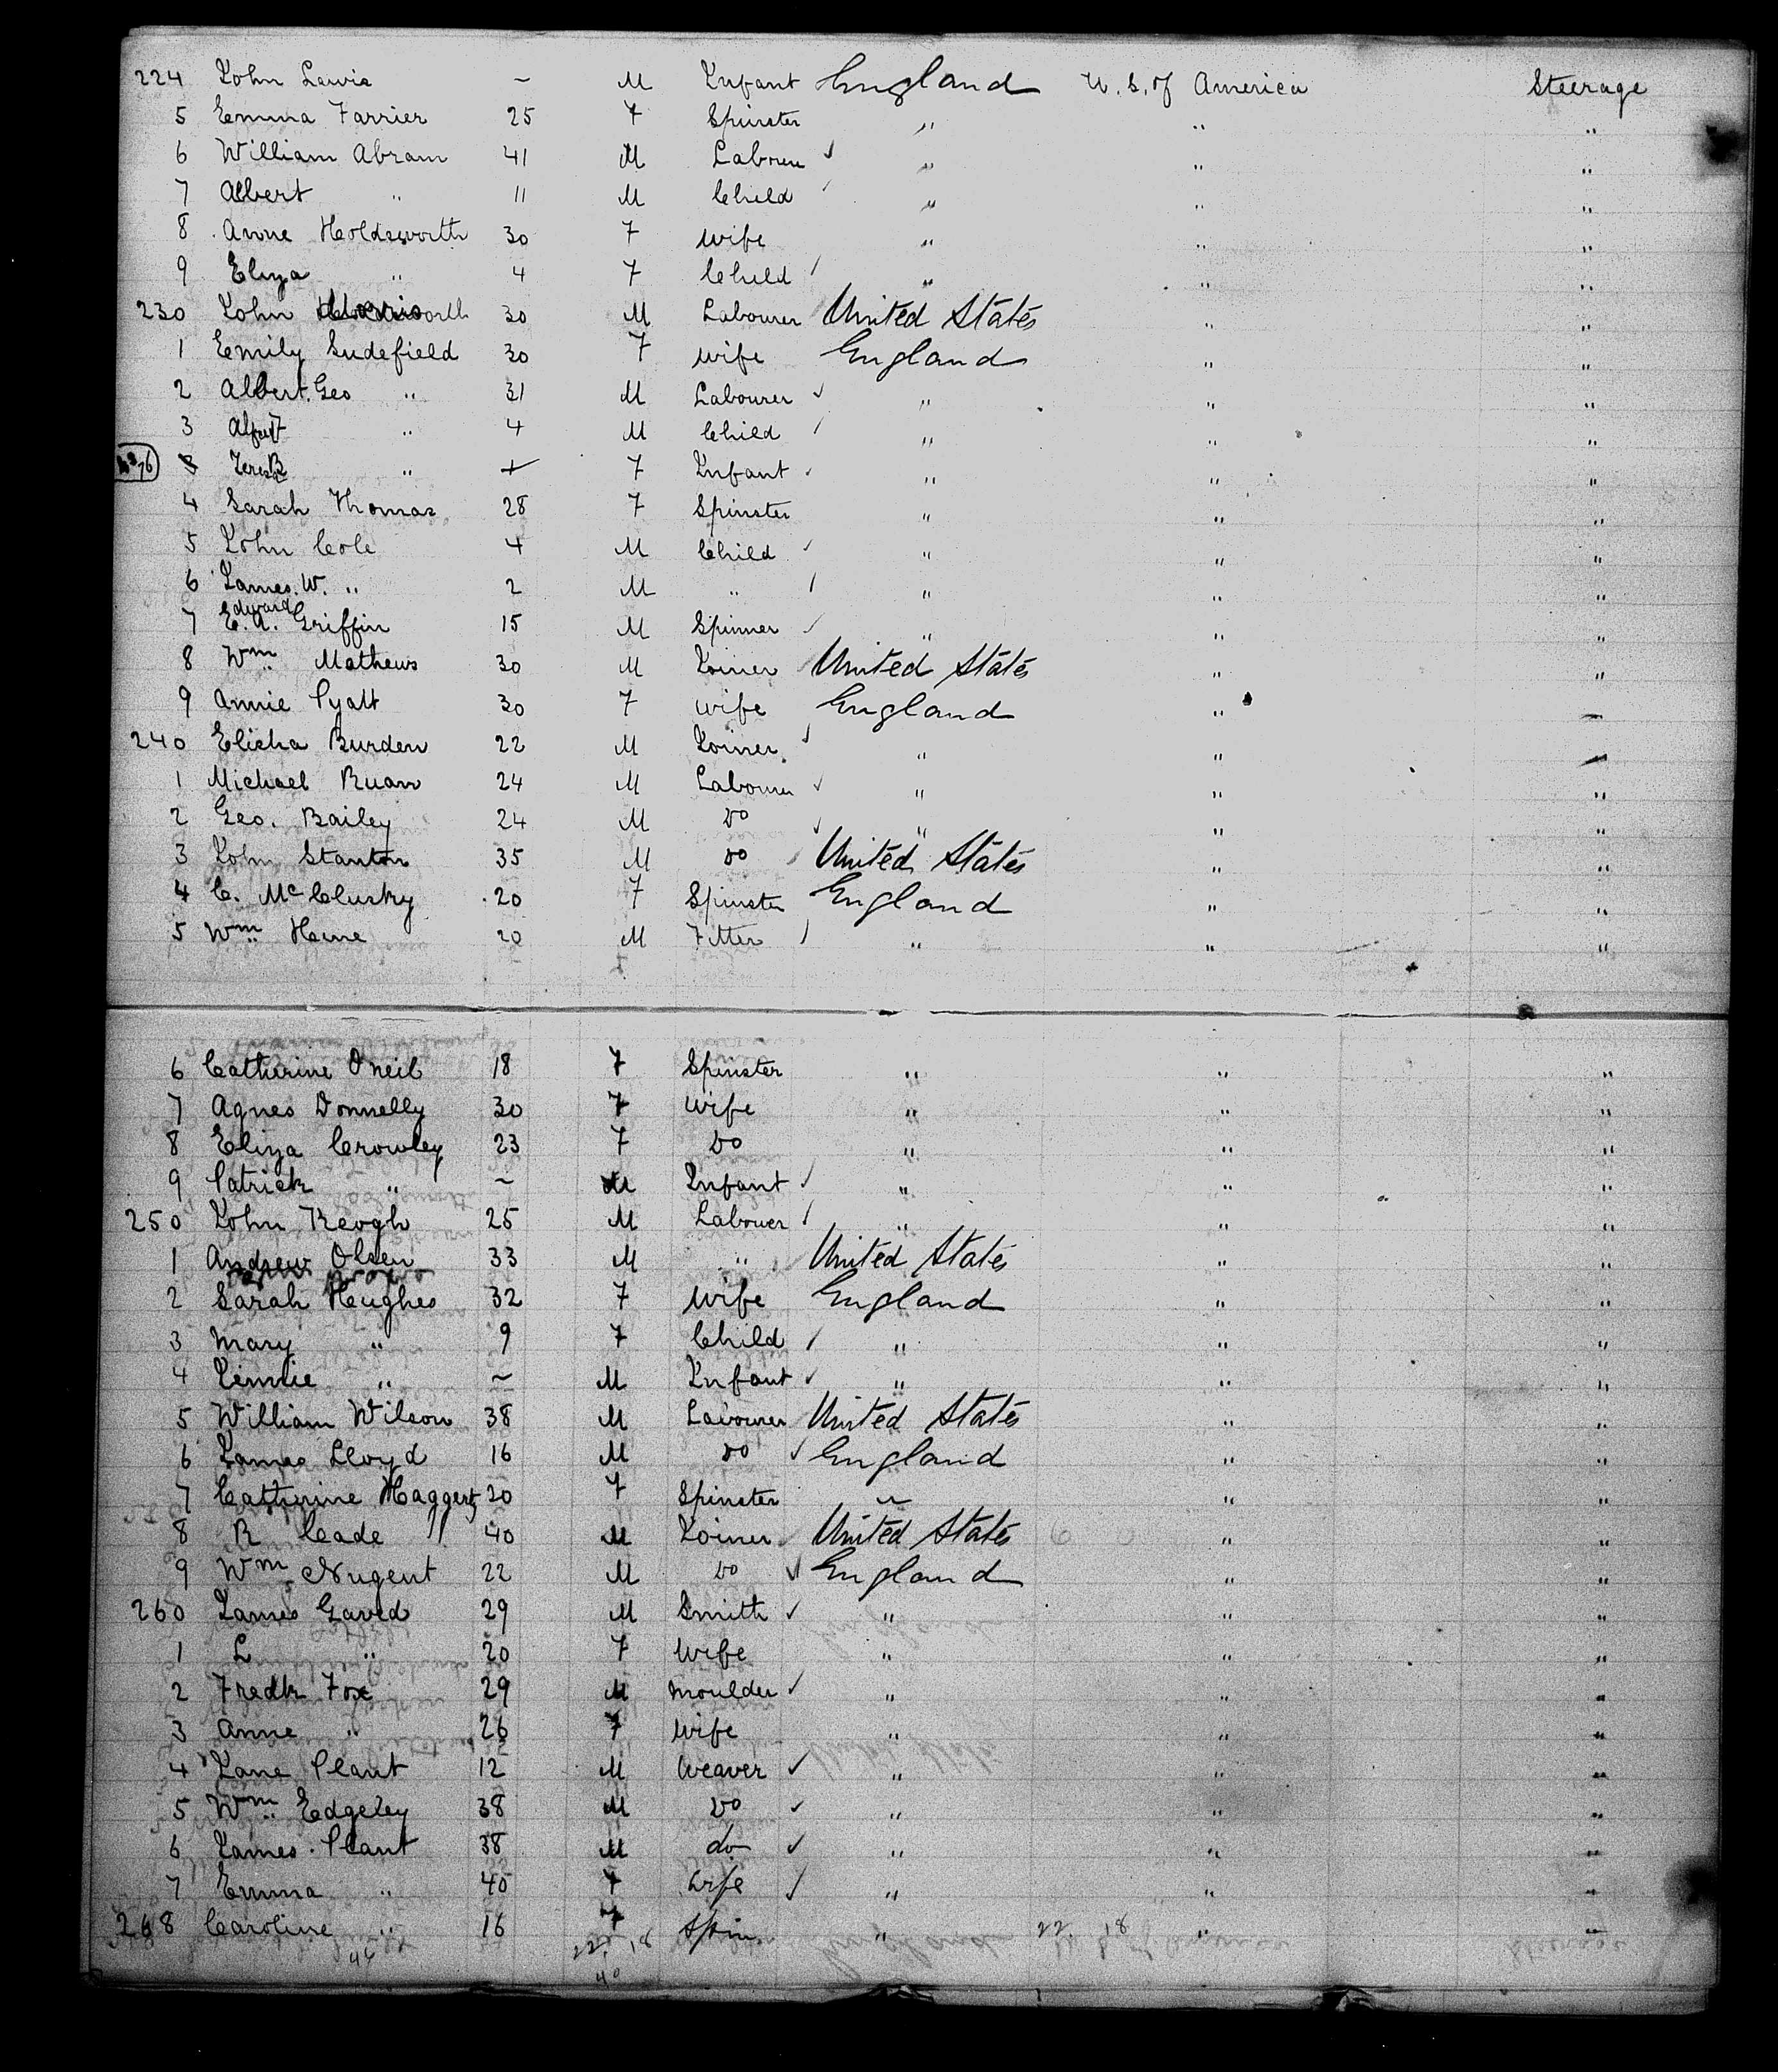 224 John Lewis ~ M Infant England U.S. of America Steerage
5 Emma Farrier 25 F Spinster " " "
6 William Abram 41 M Labourer " " "
7 Albert " 11 M Child " " "
8 Anne Holdsworth 30 F wife " " "
9 Eliza " 4 F Child " " "
230 John Morris 30 M Labourer United States " "
1 Emily Sudefield 30 F wife England " "
2 Albert Geo " 31 M Labourer " " "
3 Alfred " 4 M Child " " "
" F Infant " " "
4 Sarah Thomas 28 F Spinster " " "
5 John Cole 4 M Child " " "
6 James W. " 2 M " " " "
7 Edward Griffin 15 M Spinner " " "
8 Wm Mathews 30 M Joiner United States " "
9 Annie Pyatt 30 F wife England "
240 Elisha Burden 22 M Joiner " "
1 Michael Ruan 24 M Labourer " " "
2 Geo. Bailey 24 M Do " " "
3 John Stanton 35 M Do United States " "
4 C. McClusky 20 F Spinster England " "
5 Wm Hene 20 M Fitter " " "
6 Catherine Oneil 18 F Spinster " " "
7 Agnes Donnelly 30 F Wife " " "
8 Eliza Crowley 23 F Do " " "
9 Patrick " ~ M Infant " " "
250 John Keogh 25 M Labourer " " "
1 Andrew Olsen 33 M " United States " "
2 Sarah Hughes 32 F Wife England " "
3 Mary " 9 F Child " " "
4 " ~ M Infant " " "
5 William Wilson 38 M Labourer United States " "
6 James Lloyd 16 M Do England " "
7 Catherine Haggerty 20 F Spinster " " "
8 R Cade 40 M Joiner United States " "
9 Wm Nugent 22 M Do England " "
260 James Gaved 29 M Smith " " "
1 L " 20 F Wife " " "
2 Fredk Fox 29 M Moulder " " "
3 Anne " 26 F Wife " " "
4 Jane Plant 12 M Weaver " " "
5 Wm Edgeley 38 M Do " " "
6 James Plant 38 M do " " "
7 Emma " 40 F Wife " " "
268 Caroline " 16 F Spin " 22. 18 " "
46 22. 18
40